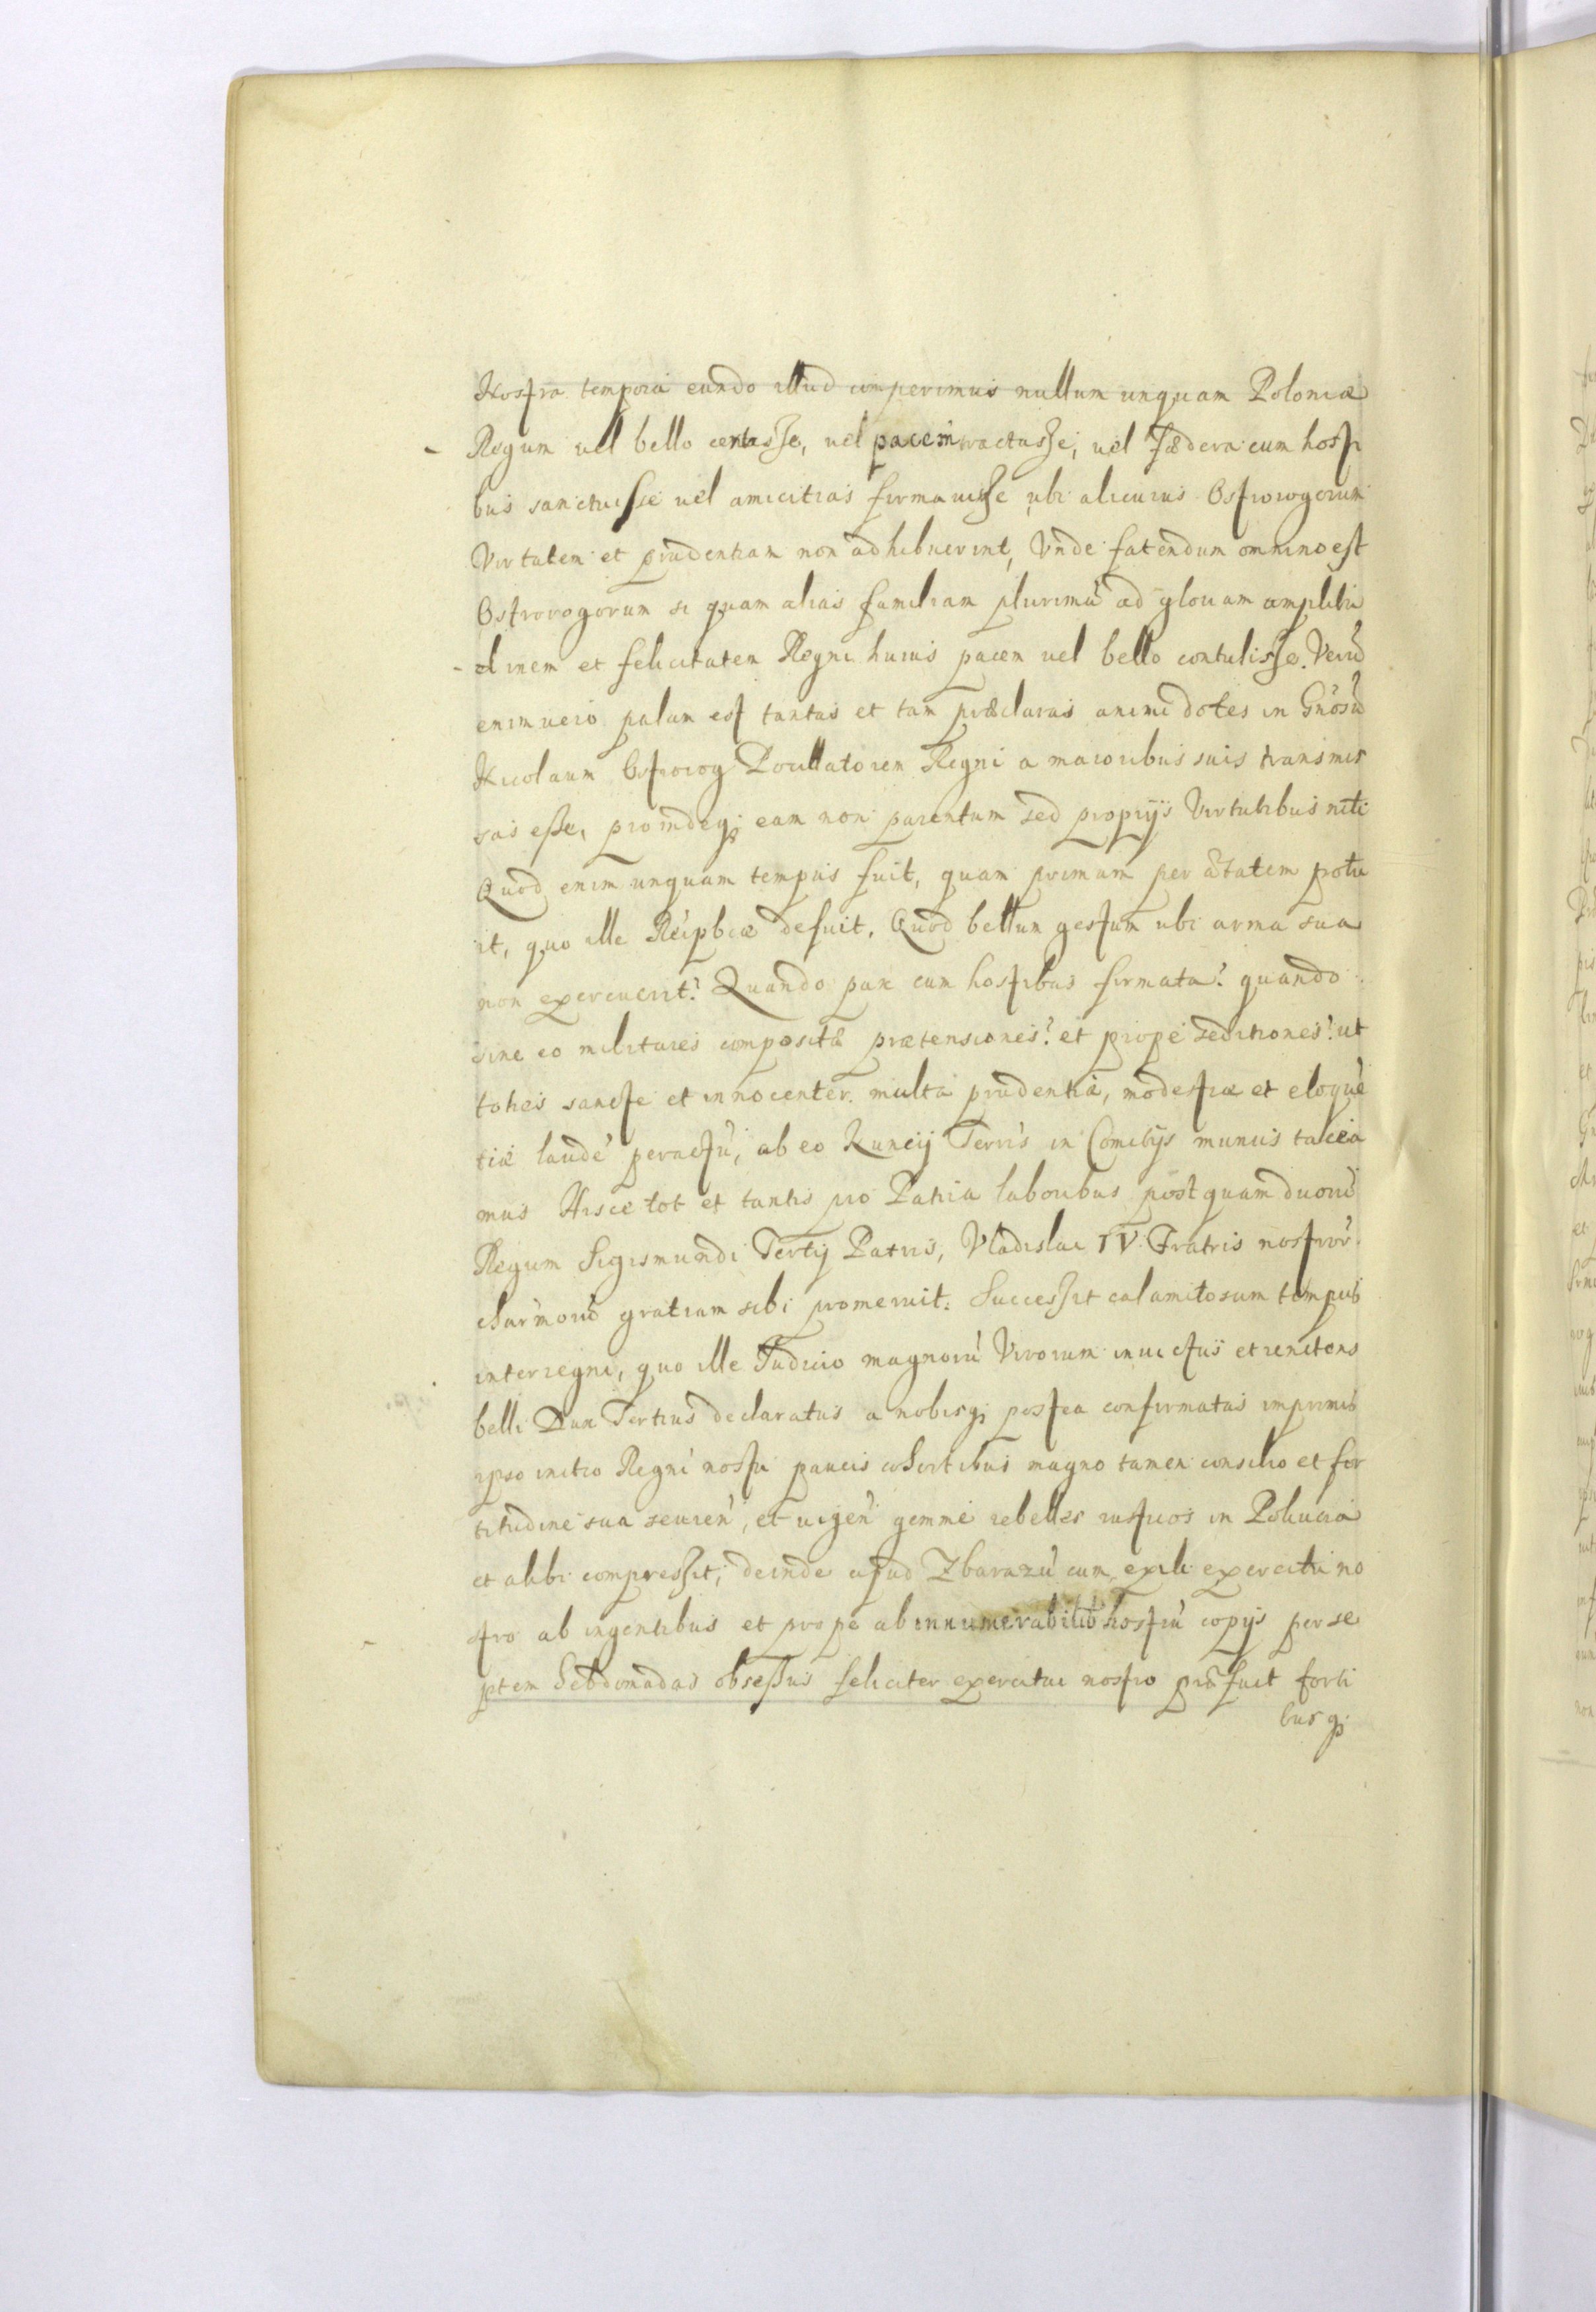 Nostra tempora eundo illud comperimus nullum unquam Poloniæ
Regum vel bello certasse, vel pacem tractasse, vel fœdera cum hosti
bus sanctuisse vel amicitias firmavisse ubi alicuius Ostrorogorum
Virtutem et prudentiam non adhibuerint, Vnde fatendum omnino est
Ostrorogorum si quam alias familiam plurimũ ad gloriam amplitu
dinem et felicitatem Regni huius pacem vel bello contulisse. Verũ
enimvero palam est tantas et tam præclaras animi dotes in Gnosũ
Nicolaum Ostrorog Pocillatorem Regni a maioribus suis transmis
sas esse, proindeq; eam non parentum sed proprijs Virtutibus niti
Quod enim unquam tempus fuit, quam primum per ætatem potu
it, quo ille Reipbcæ defuit. Quod bellum gestum ubi arma sua
non exercuerit? Quando pax cum hostibus firmata? quando
sine eo militares compositæ prætensiones? et prope seditiones? ut
toties sancte et innocenter multa prudentiæ, modestiæ et eloquẽ
tiæ laude peractũ, ab eo Nuncij Terris in Comitijs munus tacea
mus Hisce tot et tantis pro Patria laboribus post quam duorũ
Regum Sigismundi Tertij Patris, Vladislai IV. Fratris nostror̃
charmorũ gratiam sibi promeruit. Successit calamitosum tempus
interregni, quo ille Iudicio magnorũ Virorum invictus et renitens
belli Dux Tertius declaratus a nobisq; postea confirmatus imprimis
ipso initio Regni nostri paucis cohortibus magno tamen consilio et for
titudine sua
et alibi compressit, deinde apud Zbarazũ cum exili exercitu no
stro ab ingentibus et prope ab innumerabilib hostiũ copijs per se
ptem hebdomadas obsessus feliciter exercitui nostro præfuit forti
busq;